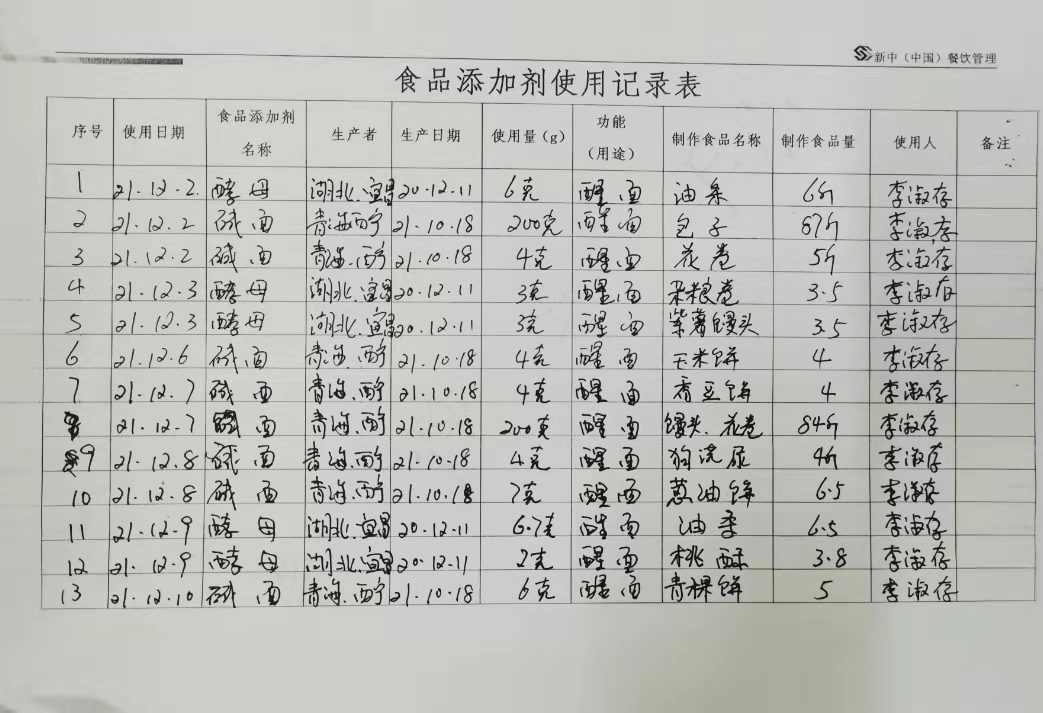 新中（中国）餐饮管理
食品添加剂使用记录表
序号 使用日期 食品添加剂名称 生产者 生产日期 使用量（g） 功能（用途） 制作食品名称 制作食品量 使用人 备注
1 21.12.2. 酵母 湖北.宜昌 20.12.11 6克 醒面 油条 6斤 李淑存
2 21.12.2 碱面 青海西宁 21.10.18 200克 醒面 包子 67斤 李淑存
3 21.12.2 碱面 青海.西宁 21.10.18 4克 醒面 花卷 5斤 李淑存
4 21.12.3 酵母 湖北.宜昌 20.12.11 3克 醒面 杂粮卷 3.5 李淑存
5 21.12.3 酵母 湖北.宜昌 20.12.11 3克 醒面 紫薯馒头 3.5 李淑存
6 21.12.6 碱面 青海.西宁 21.10.18 4克 醒面 玉米饼 4 李淑存
7 21.12.7 碱面 青海.西宁 21.10.18 4克 醒面 香豆饼 4 李淑存
8 21.12.7 碱面 青海.西宁 21.10.18 200克 醒面 馒头.花卷 84斤 李淑存
9 21.12.8 碱面 青海.西宁 21.10.18 4克 醒面 狗浇尿 4斤 李淑存
10 21.12.8 碱面 青海.西宁 21.10.18 7克 醒面 葱油饼 6.5 李淑存
11 21.12.9 酵母 湖北.宜昌 20.12.11 6.7克 醒面 油条 6.5 李淑存
12 21.12.9 酵母 湖北.宜昌 20.12.11 2克 醒面 桃酥 3.8 李淑存
13 21.12.10 碱面 青海.西宁 21.10.18 6克 醒面 青稞饼 5 李淑存